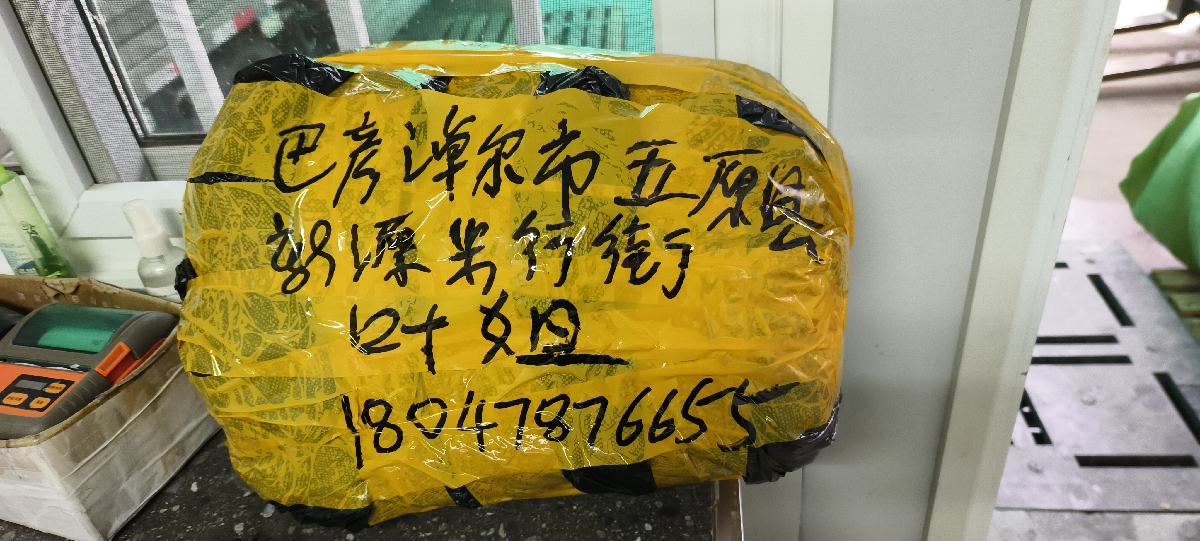 巴彦淖尔市五原县
新源米行街
叶姐
18047876655